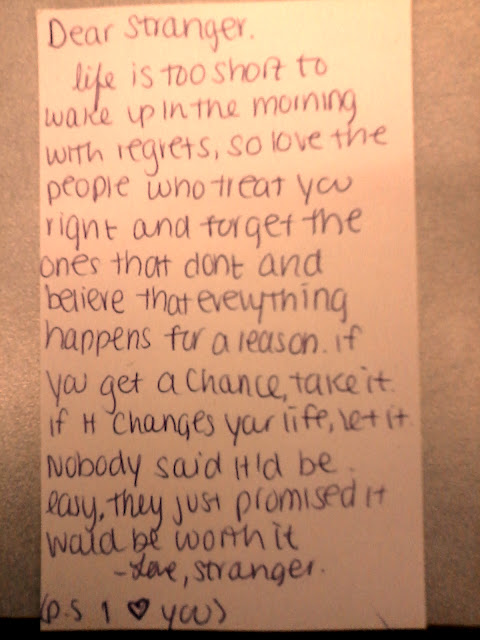 Dear Stranger.
life is too short to
wake up in the morning
with regrets, so love the
people who treat you
right and forget the
ones that dont and
believe that everything
happens for a reason. if
you get a chance, take it.
if it changes your life, let it.
Nobody said it'd be
easy, they just promised it
would be worth it
-Love, stranger.
(P.S I ♥ you)